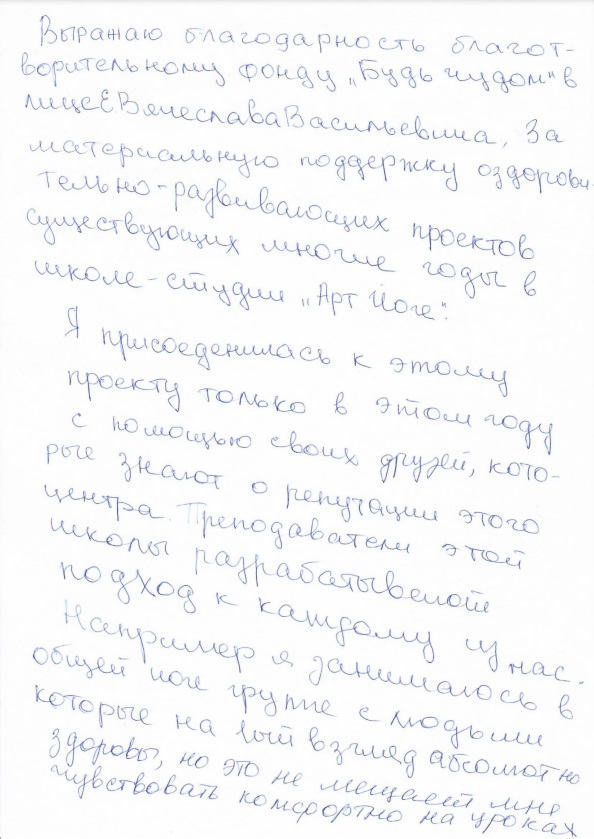 Выражаю благодарность благот-
ворительному фонду „Будь чудом" в
лице Вячеслава Васильевича, За
материальную поддержку оздорови-
тельно-развивающих проектов
существующих многие годы в
школе-студии „Арт Йоге".
Я присоеденилась к этому
проекту только в этом году
с помощью своих друзей, кото-
рые знают о репутации этого
центра. Преподаватели этой
школы разрабатывают
подход к каждому из нас.
Например я занимаюсь в
общей группе с людьми
которые на взгляд абсолютно
здоровы, но это не мешает мне
чувствовать комфортно на уроках